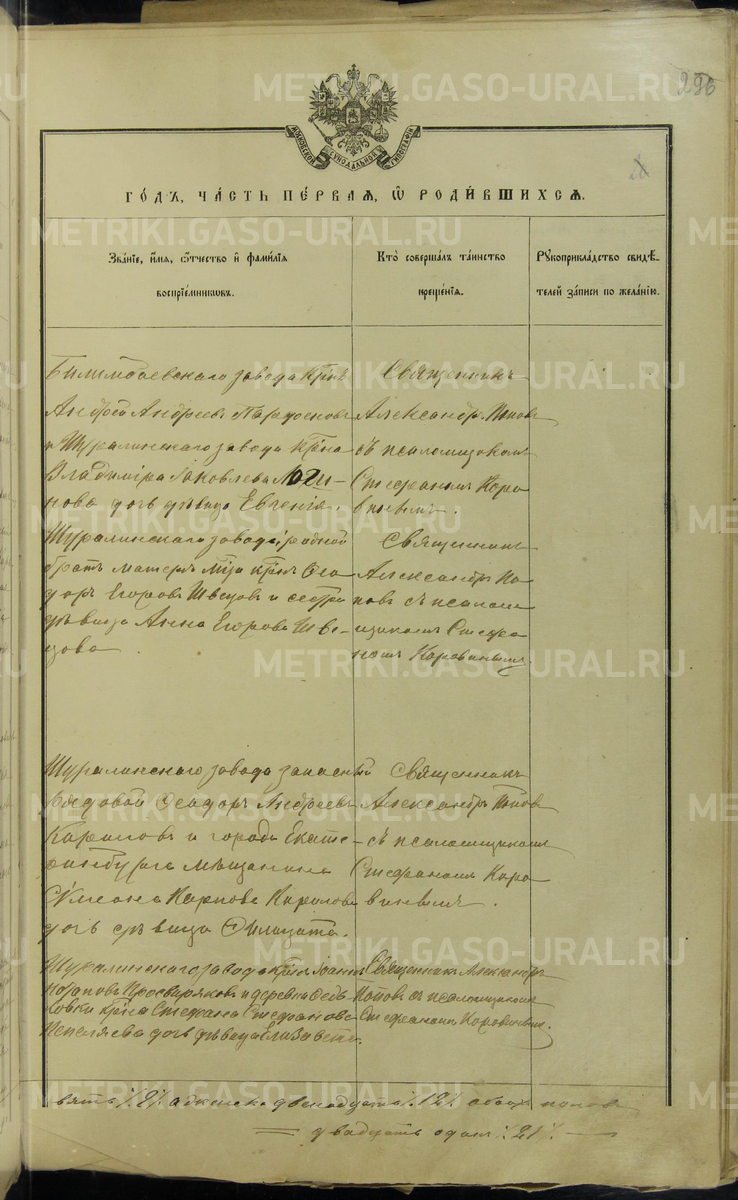 296
МОСКОВСКОЙ СѴНОДАЛЬНОЙ ТИПОГРАФІИ
ГО́ДЪ, ЧА́СТЬ ПЕ́РВАѦ, Ѡ҆ РОДИ́ВШИХСѦ.
Зва́нїе, и҆́мѧ, ѻ҆́тчество и҆ фами́лїѧ
воспрїе́мникѡвъ.
Кто̀ соверша́лъ та́инство
креще́нїѧ.
Рꙋкоприкла́дство свидѣ́-
телей за́писи по жела́нїю.
Билимбаевскаго завода крнъ
Андрей Андреевъ
и Шуралинскаго завода крна
Владиміра Яковлева Логи-
нова дочь дѣвица Евгенія.
Священникъ
Александръ Поповъ
съ псаломщикомъ
Стефаномъ Коро
винымъ.
Шуралинскаго завода, родной
братъ матери крнъ Ѳео
доръ Егоровъ Швецовъ и сестра
дѣвица Анна Егорова Шве-
цова
Священникъ
Александръ По
повъ съ псалом
щикомъ Стефа
номъ Коровинымъ
Шуралинскаго завода запасный
рядовой Ѳеодоръ Андреевъ
Карповъ и города Екате-
ринбурга мѣщанина
Сѵмеона Карпова
дочь дѣвица
Священникъ
Александръ Поповъ
съ псаломщикомъ
Стефаномъ Коро
винымъ.
Шуралинскаго завода крнъ Іоаннъ
Просвиряковъ и деревни Ѳедь
ковки крна Стефана Стефанова
Пепеляева дочь дѣвица Елизавета.
Священникъ Александръ
Поповъ съ псаломщикомъ
Стефаномъ Коровинымъ.
вять /9/ а женска двенадцать /12/ обоихъ половъ
двадцать одинъ /21/
METRIKI.GASO-URAL.RU